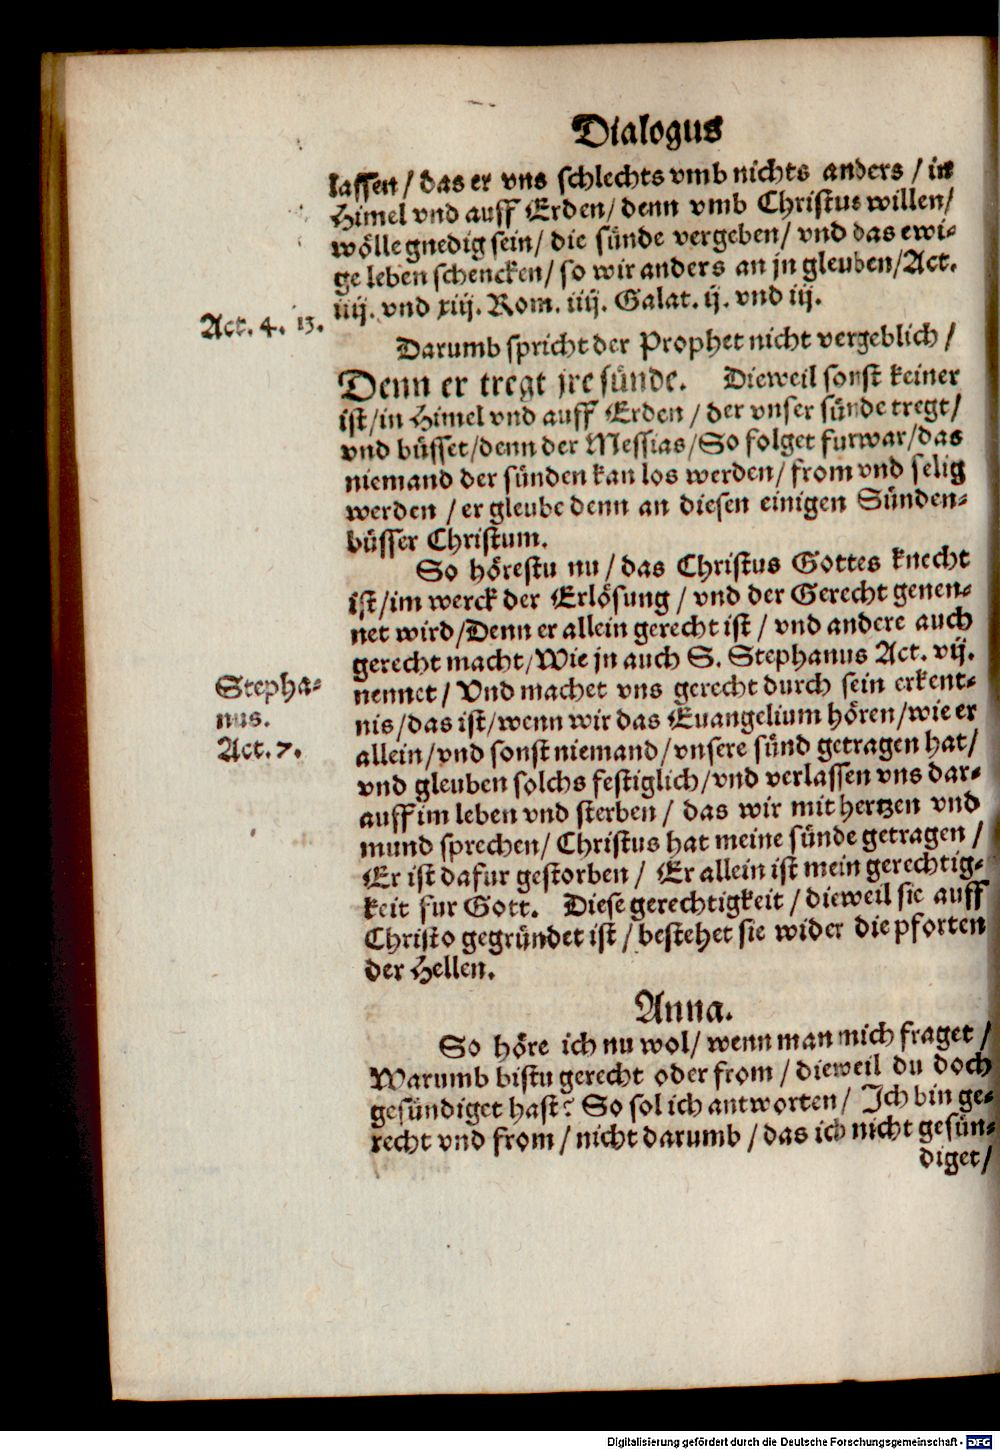 Dialogus
lassen / das er vns schlechts vmb nichts anders / in
Himel vnd auff Erden / denn vmb Christus willen /
wölle gnedig sein / die sünde vergeben / vnd das ewi-
ge leben schencken / so wir anders an jn gleuben / Act.
iiij. vnd xiij. Rom. iiij. Galat. ij. vnd iij.
Act. 4. 13.
Darumb spricht der Prophet nicht vergeblich /
Denn er tregt jre sünde. Dieweil sonst keiner
ist / in Himel vnd auff Erden / der vnser sünde tregt /
vnd büsset / denn der Messias / So folget furwar / das
niemand der sünden kan los werden / from vnd selig
werden / er gleube denn an diesen einigen Sünden-
büsser Christum.
So hörestu nu / das Christus Gottes knecht
ist / im werck der Erlösung / vnd der Gerecht genen-
net wird / Denn er allein gerecht ist / vnd andere auch
gerecht macht / Wie jn auch S. Stephanus Act. vij.
Stepha-
nus.
Act. 7.
nennet / Vnd machet vns gerecht durch sein erkent-
nis / das ist / wenn wir das Euangelium hören / wie er
allein / vnd sonst niemand / vnsere sünd getragen hat /
vnd gleuben solchs festiglich / vnd verlassen vns dar-
auff im leben vnd sterben / das wir mit hertzen vnd
mund sprechen / Christus hat meine sünde getragen /
Er ist dafur gestorben / Er allein ist mein gerechtig-
keit fur Gott. Diese gerechtigkeit / dieweil sie auff
Christo gegründet ist / bestehet sie wider die pforten
der Hellen.
Anna.
So höre ich nu wol / wenn man mich fraget /
Warumb bistu gerecht oder from / dieweil du doch
gesündiget hast? So sol ich antworten / Ich bin ge-
recht vnd from / nicht darumb / das ich nicht gesün-
diget /
Digitalisierung gefördert durch die Deutsche Forschungsgemeinschaft - DFG